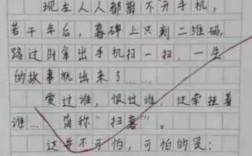 现在人人都离不开手机，
若干年后，墓碑上只刻二维码，
路过时拿出手机扫一扫，一生
的故事就出来了……
爱过谁，恨过谁，还牵挂着
谁…简称“扫墓”。
这并不可怕，可怕的是：